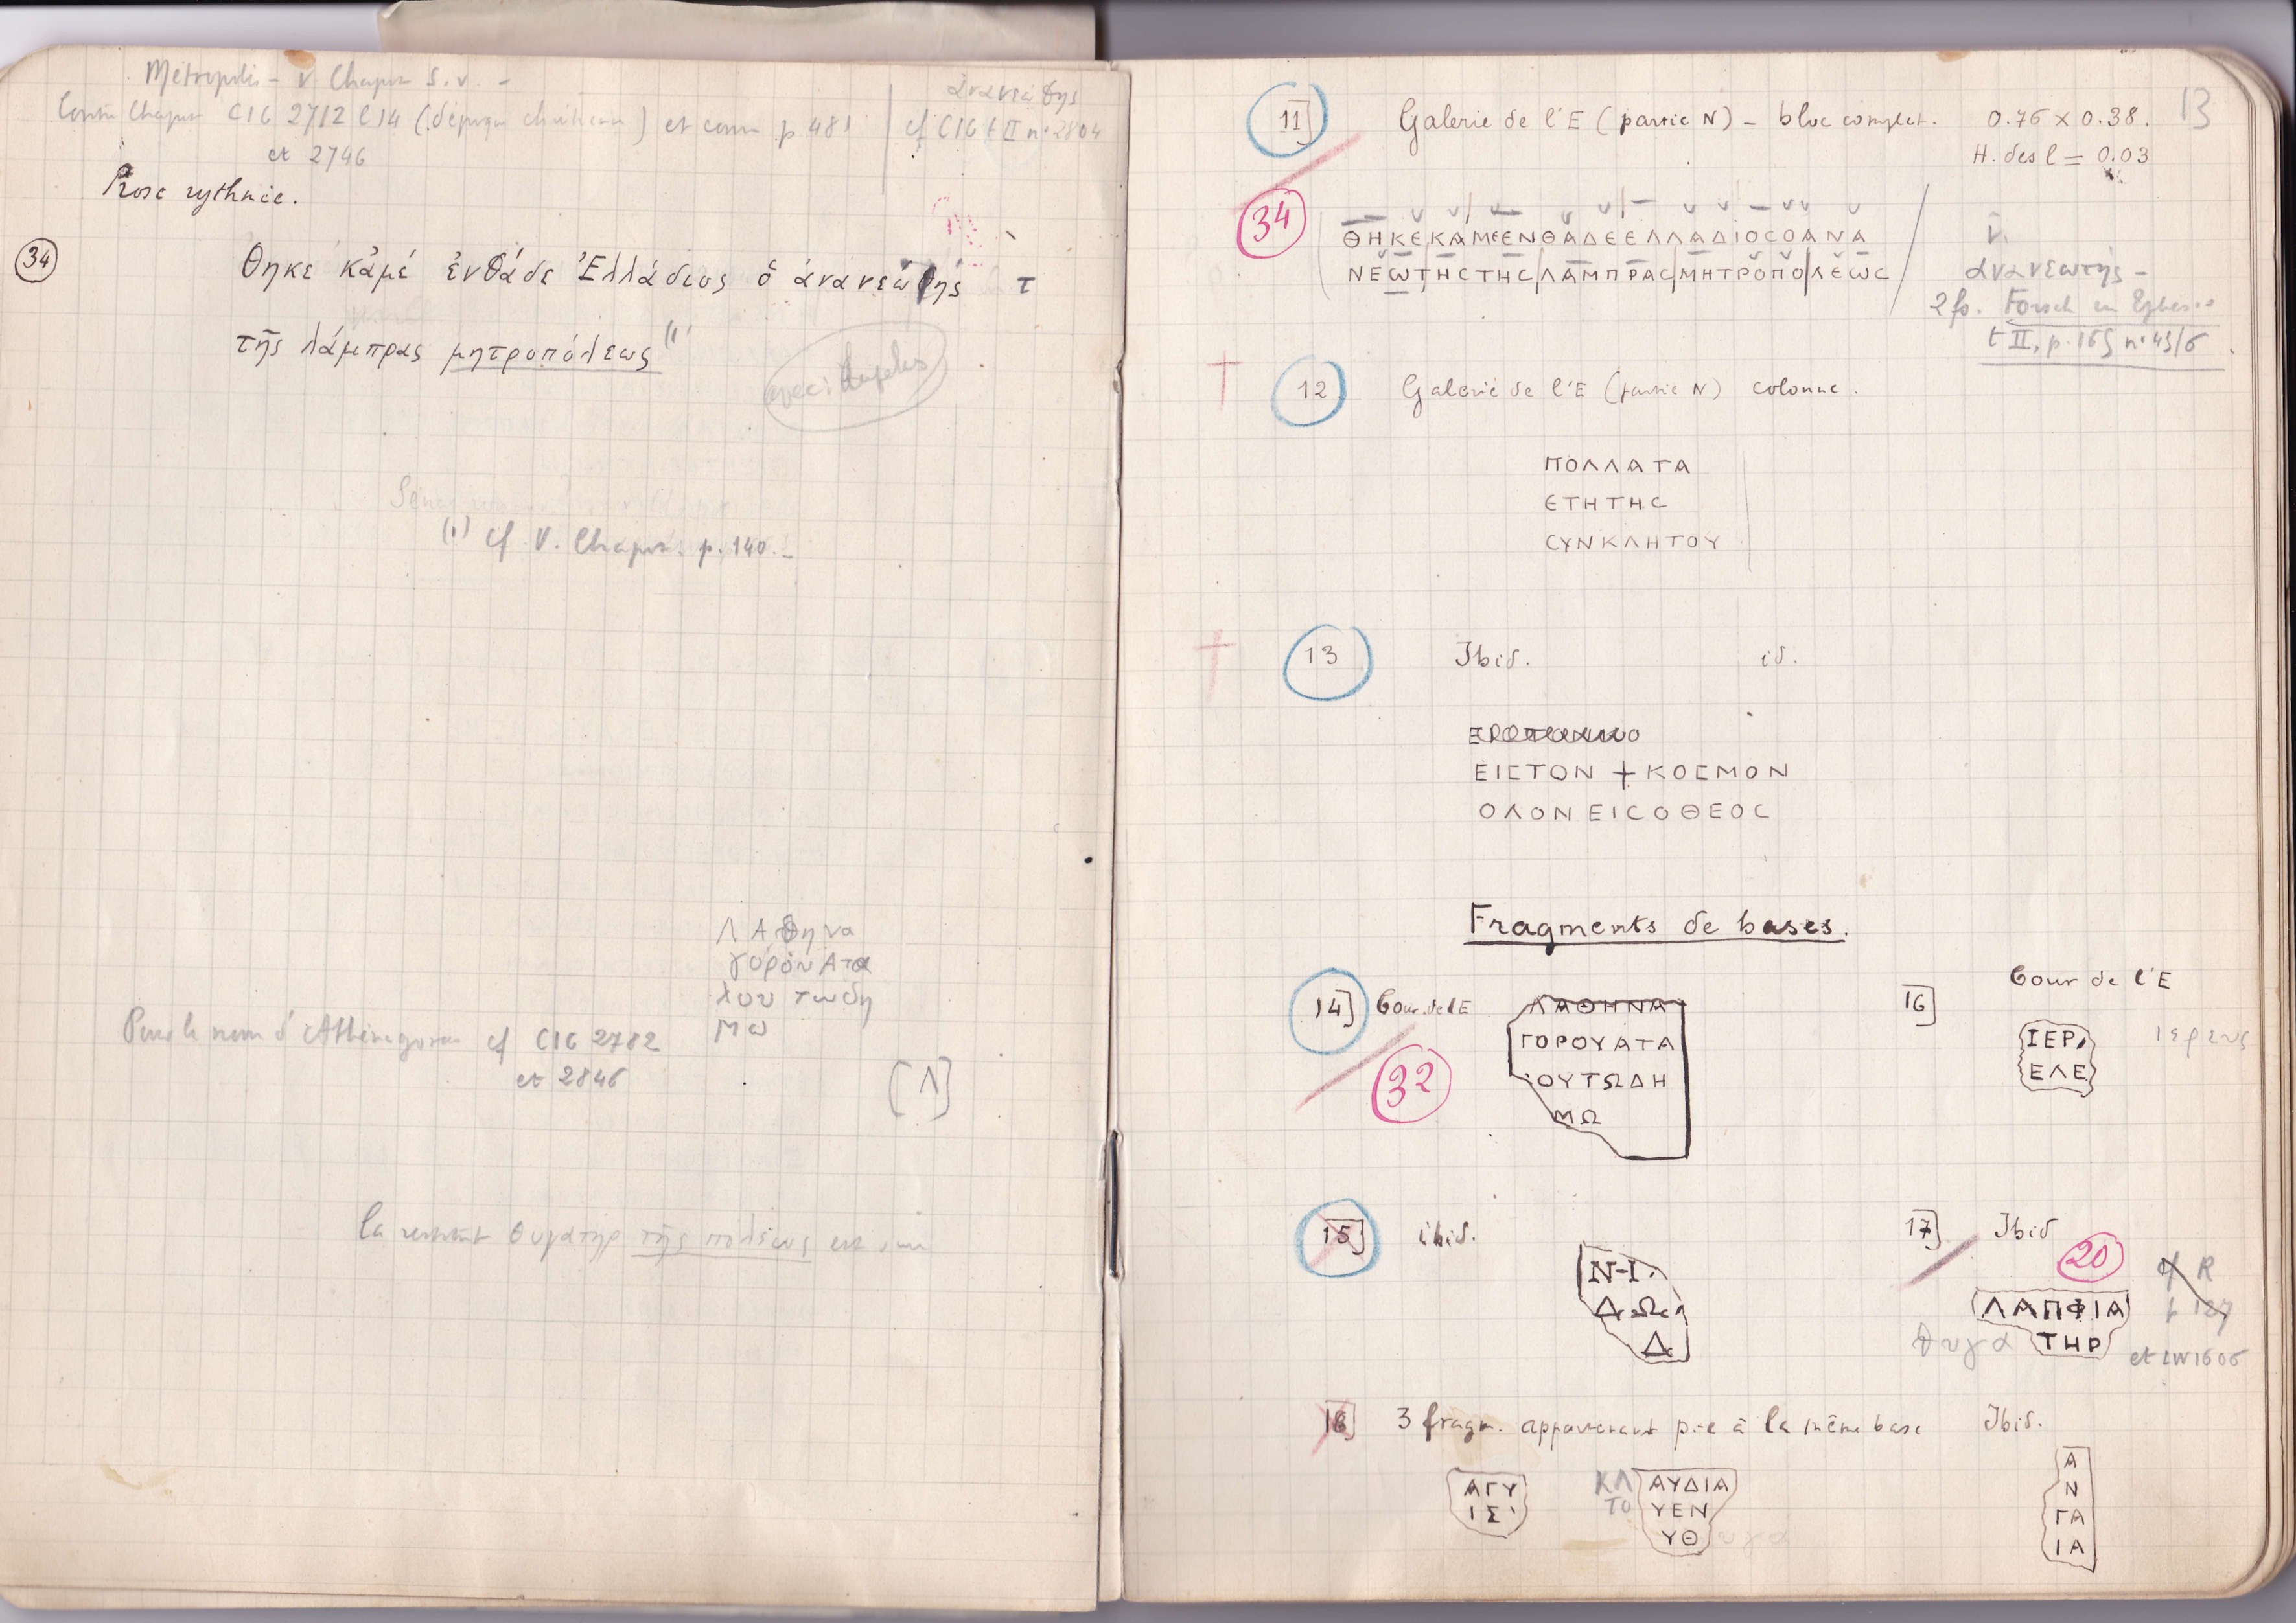 Métropolis – V. Chapot s.v. –
Contre Chapot CIG 2712 l 14 (d'époque chrétienne) et comm p 481
et 2746
ἀνανεώτης
cf CIG t II nº 2804
Prose rythmée.
34
Θηκε κἀμέ ἐνθάδε Ἑλλάδιος ὁ ἀνανεώτης τ
τῆς λάμπρας μητροπόλεως (1
(1) cf V. Chapot. p. 140. –
Λ Αθηνα
γόρον Ατα
λου τω δη
μω
Pour le nom d'Athénagoras cf CIG 2782
et 2846
[Λ]
θυγατηρ τῆς πόλεως
13
11] Galerie de l'E (partie N) – bloc complet. 0.76 × 0.38.
H. des l = 0.03
34
ΘΗΚΕΚΑΜΕΕΝΘΑΔΕΕΛΛΑΔΙΟCΟΑΝΑ
ΝΕΩΤΗCΤΗCΛΑΜΠΡΑCΜΗΤΡΟΠΟΛΕΩC
v.
ἀνανεωτής –
2 fo. Forsch in Ephes..
t II, p. 165 nº 45/6
12 Galerie de l'E (partie N) colonne.
ΠΟΛΛΑΤΑ
ΕΤΗΤΗC
CΥΝΚΛΗΤΟΥ
13 Ibid. id.
ΕΙCΤΟΝ + ΚΟCΜΟΝ
ΟΛΟΝΕΙCΟΘΕΟC
Fragments de bases.
14] Cour de l'E
32
ΛΑΘΗΝΑ
ΓΟΡΟΥΑΤΑ
ΟΥΤΩΔΗ
ΜΩ
16] Cour de l'E
ΙΕΡ
ΕΛΕ
ιερευς
15] ibid.
Ν-Ι.
Δ
17] Ibid
20
ΛΑΠΦΙΑ
θυγα ΤΗΡ
cf R
p 127
et LW 1606
18] 3 fragm. appartenant p-ê à la même base Ibid.
ΑΓΥ
ΙΣ
ΚΛ ΑΥΔΙΑ
ΤΟ ΥΕΝ
ΥΘ υγα
Α
Ν
ΓΑ
ΙΑ